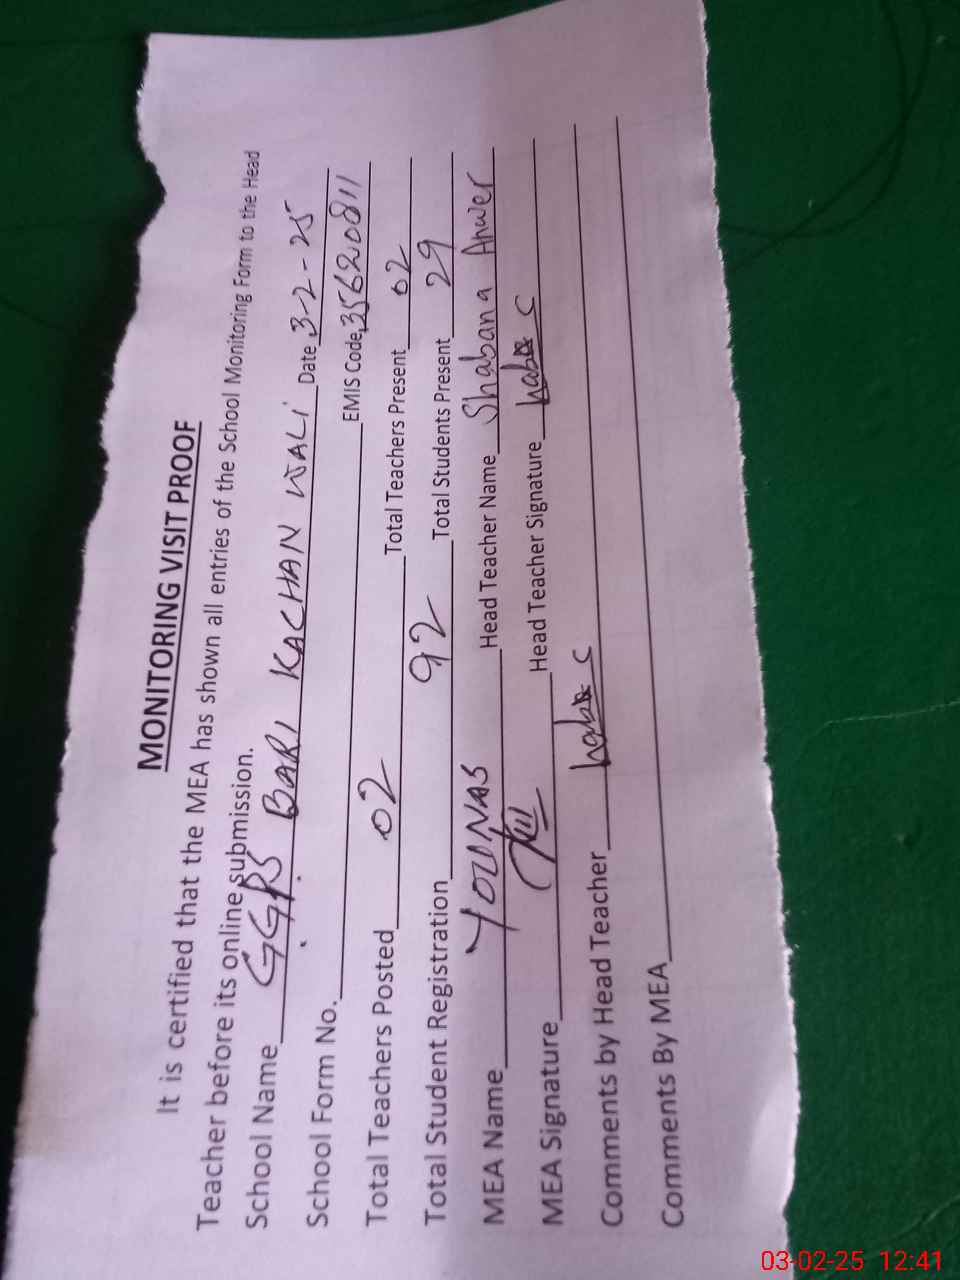 MONITORING VISIT PROOF
It is certified that the MEA has shown all entries of the School Monitoring Form to the Head
Teacher before its online submission.
School Name GGPS BARI KACHAN WALI Date 3-2-25
School Form No. EMIS Code 35620811
Total Teachers Posted 02 Total Teachers Present 02
Total Student Registration 92 Total Students Present 29
MEA Name YOUNAS Head Teacher Name Shabana Anwer
MEA Signature Head Teacher Signature
Comments by Head Teacher
Comments By MEA
03-02-25 12:41